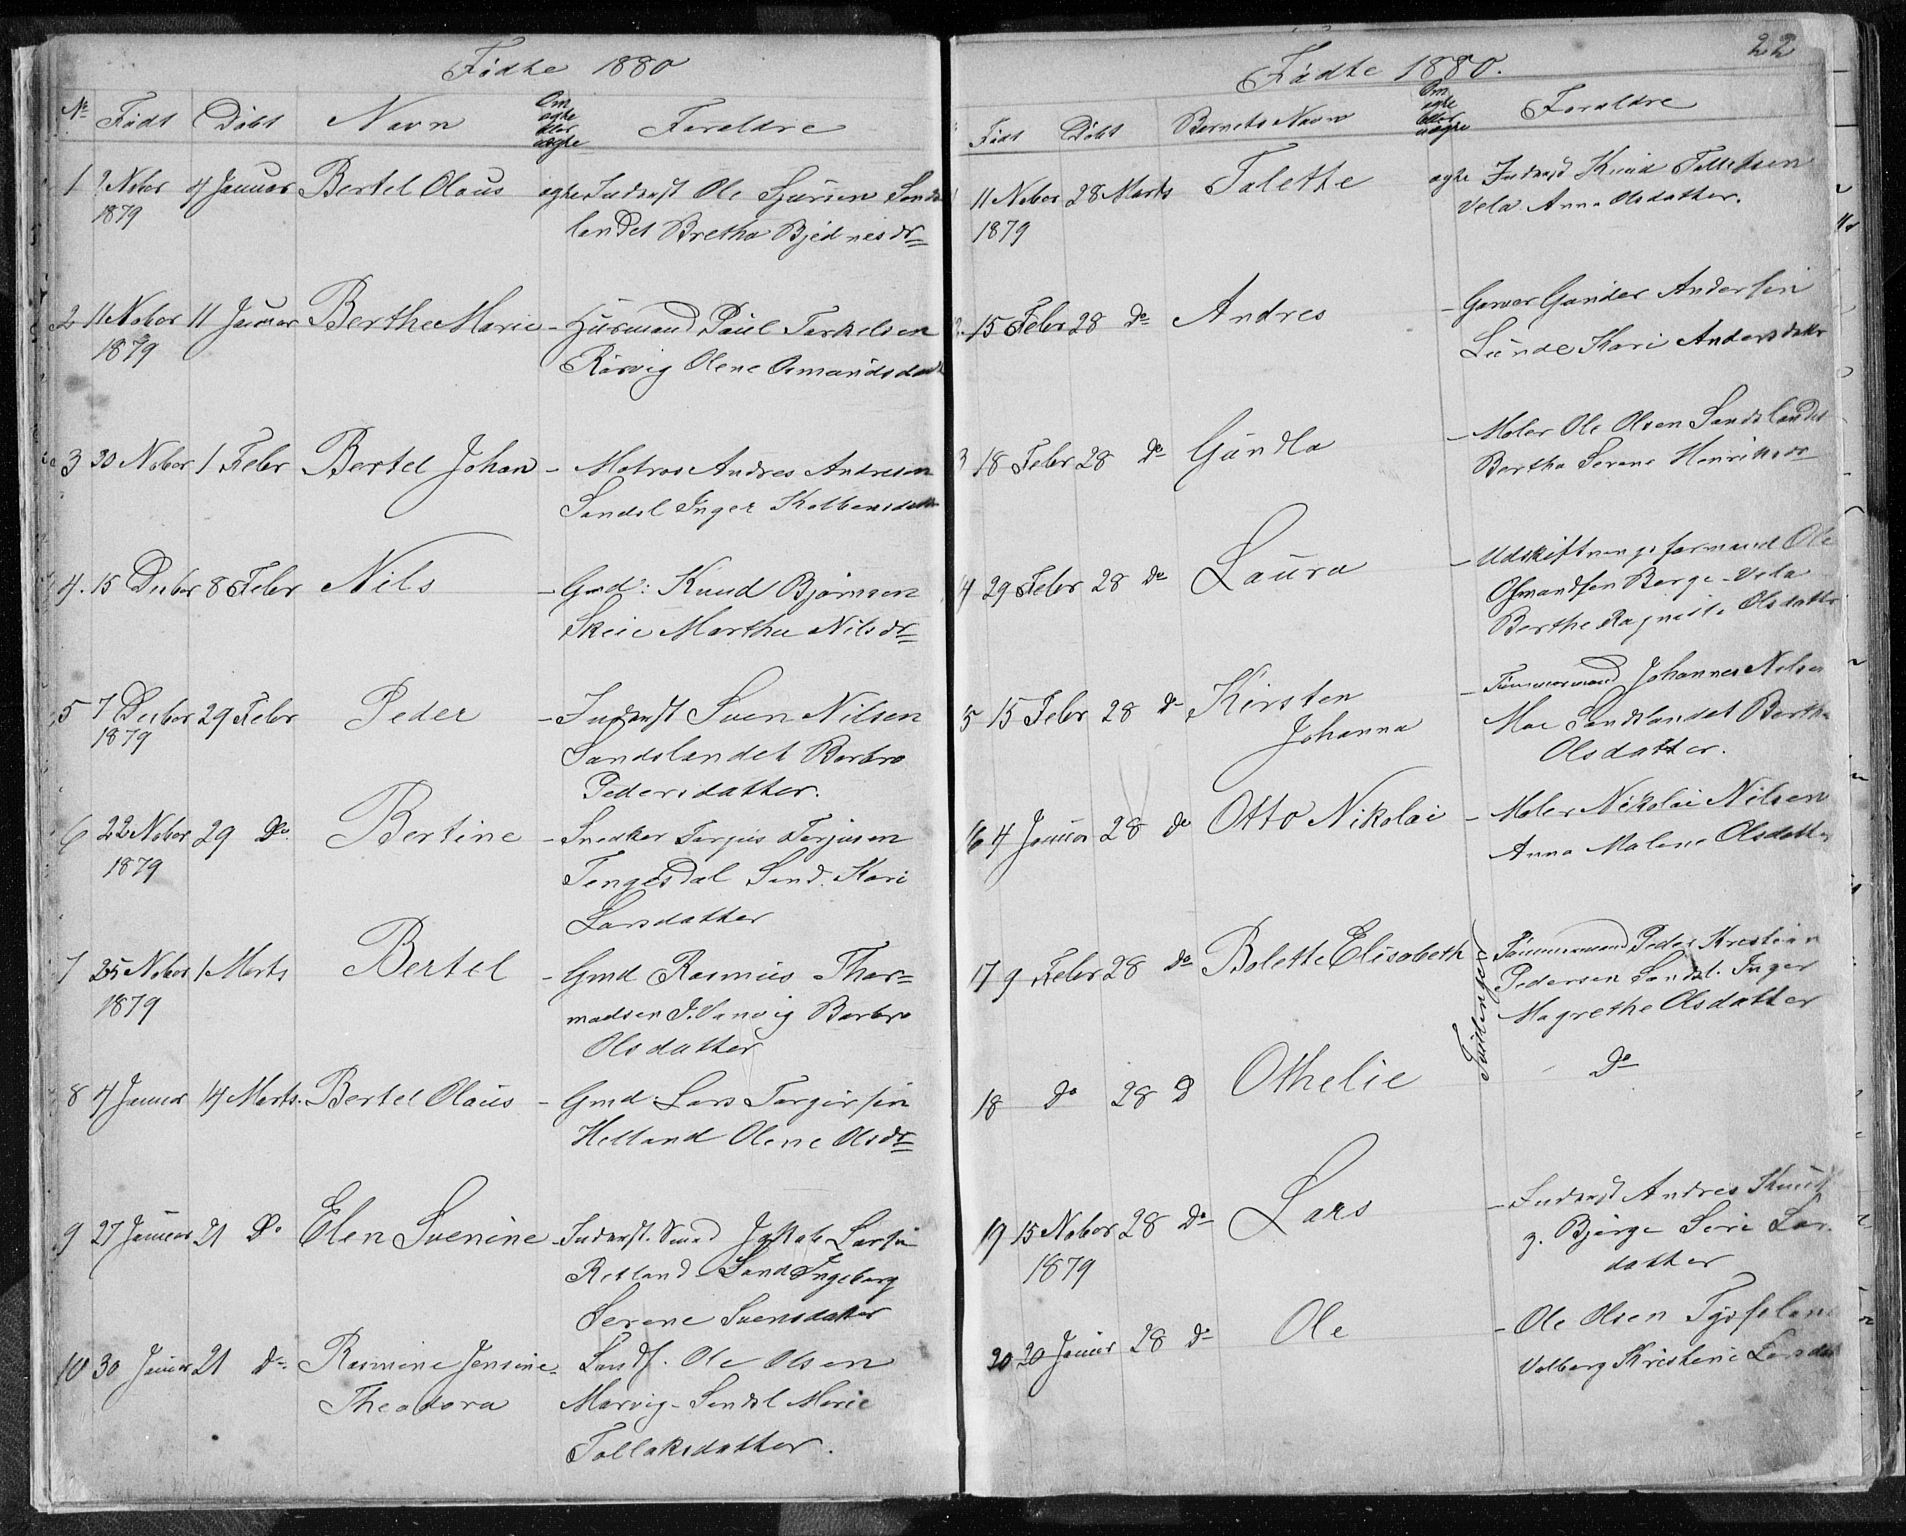 Fødte 1880
No Født Døbt Navn Om ægte eller uægte Foreldre
1 9 Nobr 4 Januar Bertel Olaus ægte Inderst Ole Sjursen Sands
1879 landet Bretha Bjednesdr
2 11 Nobor 11 Januar Berthe Marie - Husmand Paul Terkelsen
1879 Rørvig Olene Osmundsdatt
3 30 Nobor 1 Febr Bertel Johan - Matros Andres Andresen
Sandsl Inger Kolbensdatter
4. 15 Decbor 8 Febr Nils - Gmd: Knud Bjørnsen
Skeie Martha Nilsdr
5 7 Decbor 29 Febr Peder - Inderst Sven Nilsen
1879 Sandslandet Barbro
Pedersdatter.
6 22 Nobor 29 do Bertine - Snedker Torjus Torjusen
1879 Tengesdal Sand. Kari
Larsdatter
7 25 Nobor 1 Marts Bertel - Gmd Rasmus Thor=
1879 madsen I. Vanvig Barbro
Olsdatter
8 4 Januar 14 Marts. Bertel Olaus - Gmd: Lars Torgersen
Helland Olene Olsdr
9 27 Januar 21 Do Elen Svenine - Inderst. Smed Jakob Larsen
Retland Sand Ingeborg
Serene Svensdatter
10 30 Januar 21 do Rasmine Jensine - Sandf. Ole Olsen
Theodora Marvig - Sandsl Marie
Tollaksdatter.
22
Fødte 1880.
Født Døbt Barnets Navn Om ægte eller uægte Foreldre
11 Nobor 28 Marts Talette ægte Inderst Knud Tollefsen
1879 Vela Anna Olsdatter.
15 Febr 28 do Andres - Garver Gunder Andersen
Lunde Kari Andersdatter
3 18 Febr 28 do Gunda - Maler Ole Olsen Sandslandet
Bertha Serene Henriksdr
4 29 Febr 28 do Laura - Udskiftningsformand Ole
Osmundsen Berge - Vela
Berthe Ragnille Olsdatter
5 15 Febr 28 do Kirsten - Tømmermand Johannes Nelsen
Johanna Moe Sandslandet Bertha
Olsdatter.
16 4 Januar 28 do Otto Nikolai - Maler Nikolai Nilsen
Anna Malene Olsdatter
17 9 Febr 28 do Bolette Elisabeth Tvillinger Tømmermand Peder Kristian
Pedersen Sandsl. Inger
Magrethe Olsdatter
18 do 28 D Othelie do
19 15 Nobor 28 do Lars - Inderst Andres Knuds
1879 g. Bjerge Siri Lars
datter
20 20 Januar 28 do Ole - Ole Olsen Tysseland
Valborg Kristine Larsdatt